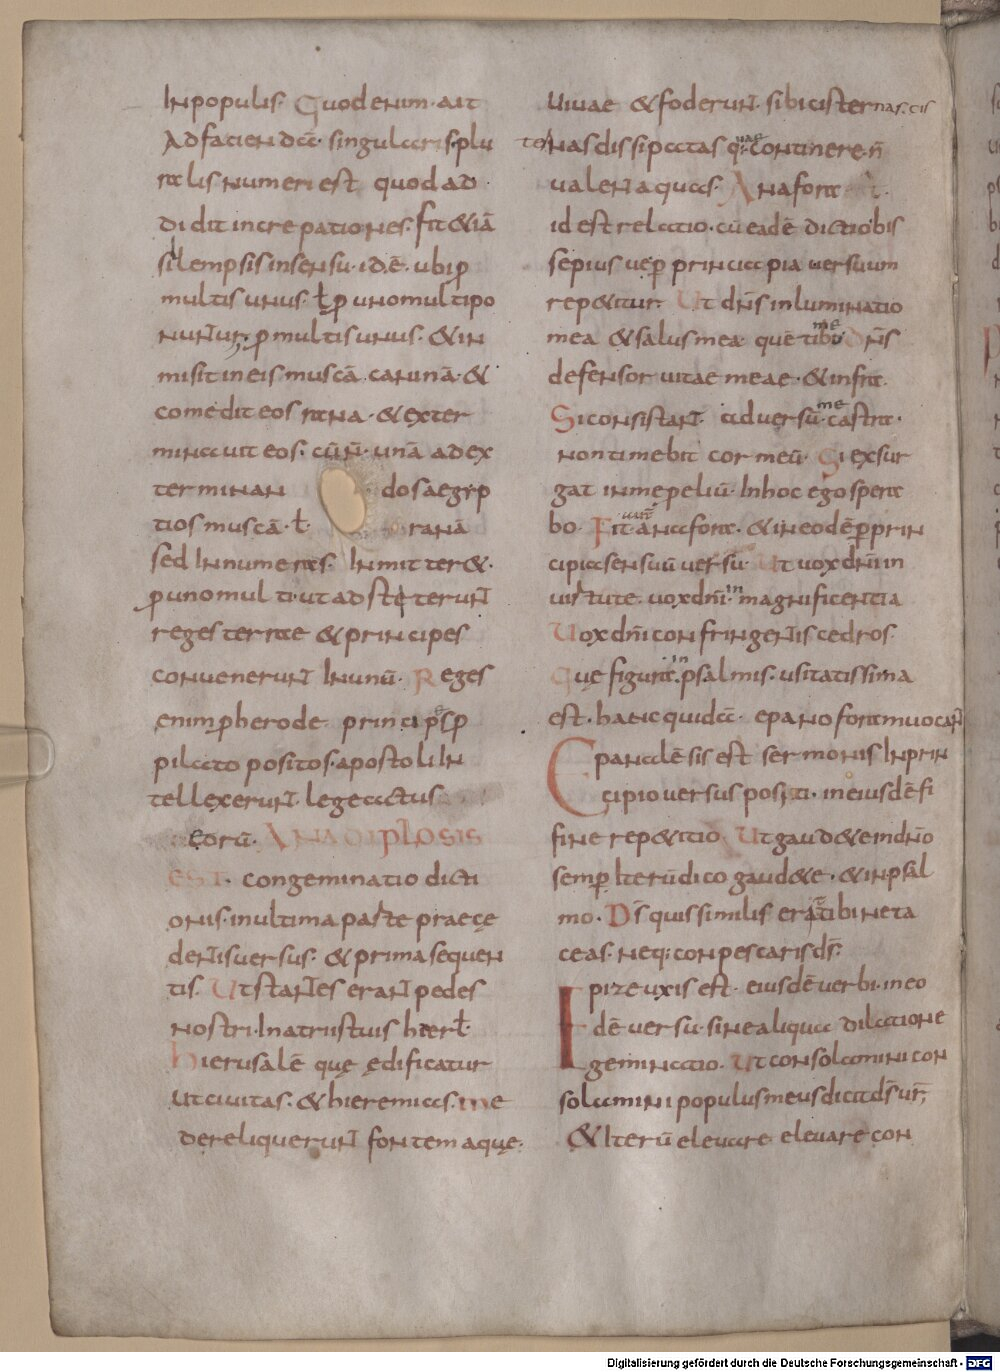 In populis. Quod enim ait
Ad faciendā. singularis plu
ralis numeri est quod ad
didit increpationes. fit & iā
silempsis in sensu. id. ē. ubi ꝑ
multis unus. ł ꝑ uno multi po
nuntur; ꝑ multis unus. & in
misit in eis muscā caninā. &
comedit eos rana. & exter
minauit eos. cū ñ. unā ad ex
terminan dos aegip
tios muscā. ł ranā
sed Innumeras. Inmitter&.
ꝑ uno multi. ut adsteterunt
reges terrae & principes
conuenerunt In unū. Reges
enim ꝑ herode principes ꝑ
pilato positos. apostoli In
tellexerunt. lege actus
eorū. ANADIPLOSIS
EST. congeminatio dicti
onis. in ultima parte praece
dentis uersus. & prima sequen
tis. Ut stantes erant pedes
nostri. In atriis tuis hierł.
hierusalē que edificatur
ut ciuitas. & hieremias. me
dereliquerunt fontem aque.
uiuae & foderunt. sibi cisternas. cis
ternas dissipatas q: continere. ñ
nae
ualent aquas. Anafora ē.
id est relatio. cū eadē dictio bis
sepius ue ꝑ principia uersuum
rep&itur. Ut dñs inluminatio
mea & salus mea quē timebo Dñs
defensor uitae meae. & infra.
Si consistant. aduersū me castra.
non timebit cor meū. Si exsur
gat in me peliū. In hoc ego spera
bo. Fit anafora. & in eodē ꝑ prin
cipia sensuū uersu. Ut uox dñi in
uirtute. uox dñi. in magnificentia
Uox dñi confringentis cedros.
Que figura. in psalmis. usitatissima
est. hanc quidā. epanoforam uocant
Epanalēsis est sermonis In prin
cipio uersus positi. in eiusdē fi
fine rep&itio. Ut gaud&e in dño
semꝑ Iterū dico gaud&e. & in psal
mo. Dš quis similis erit tibi ne ta
ceas. neq: conpescaris dš.
Epizeuxis est. eiusdē uerbi. in eo
dē uersu. sine aliqua dilatione
geminatio. Ut consolamini con
solamini populus meus dicit dš ur̃;
& Iterū eleuare eleuare con
Digitalisierung gefördert durch die Deutsche Forschungsgemeinschaft - DFG